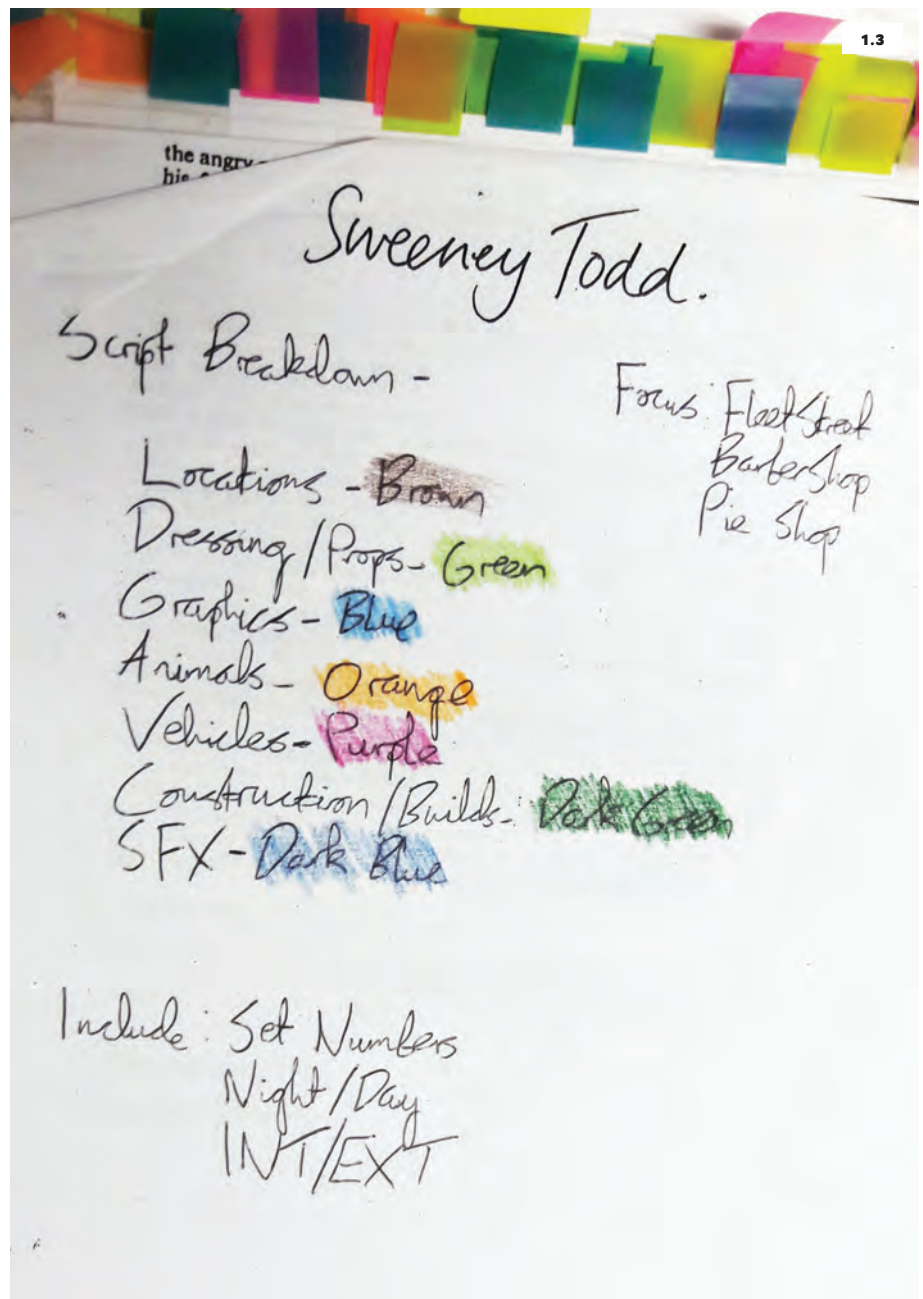 1.3
the angry
his
Sweeney Todd.
Script Breakdown -
Focus: Fleet Street
Barber Shop
Pie Shop
Locations - Brown
Dressing/Props - Green
Graphics - Blue
Animals - Orange
Vehicles - Purple
Construction/Builds -: Dark Green
SFX - Dark Blue
Include: Set Numbers
Night/Day
INT/EXT